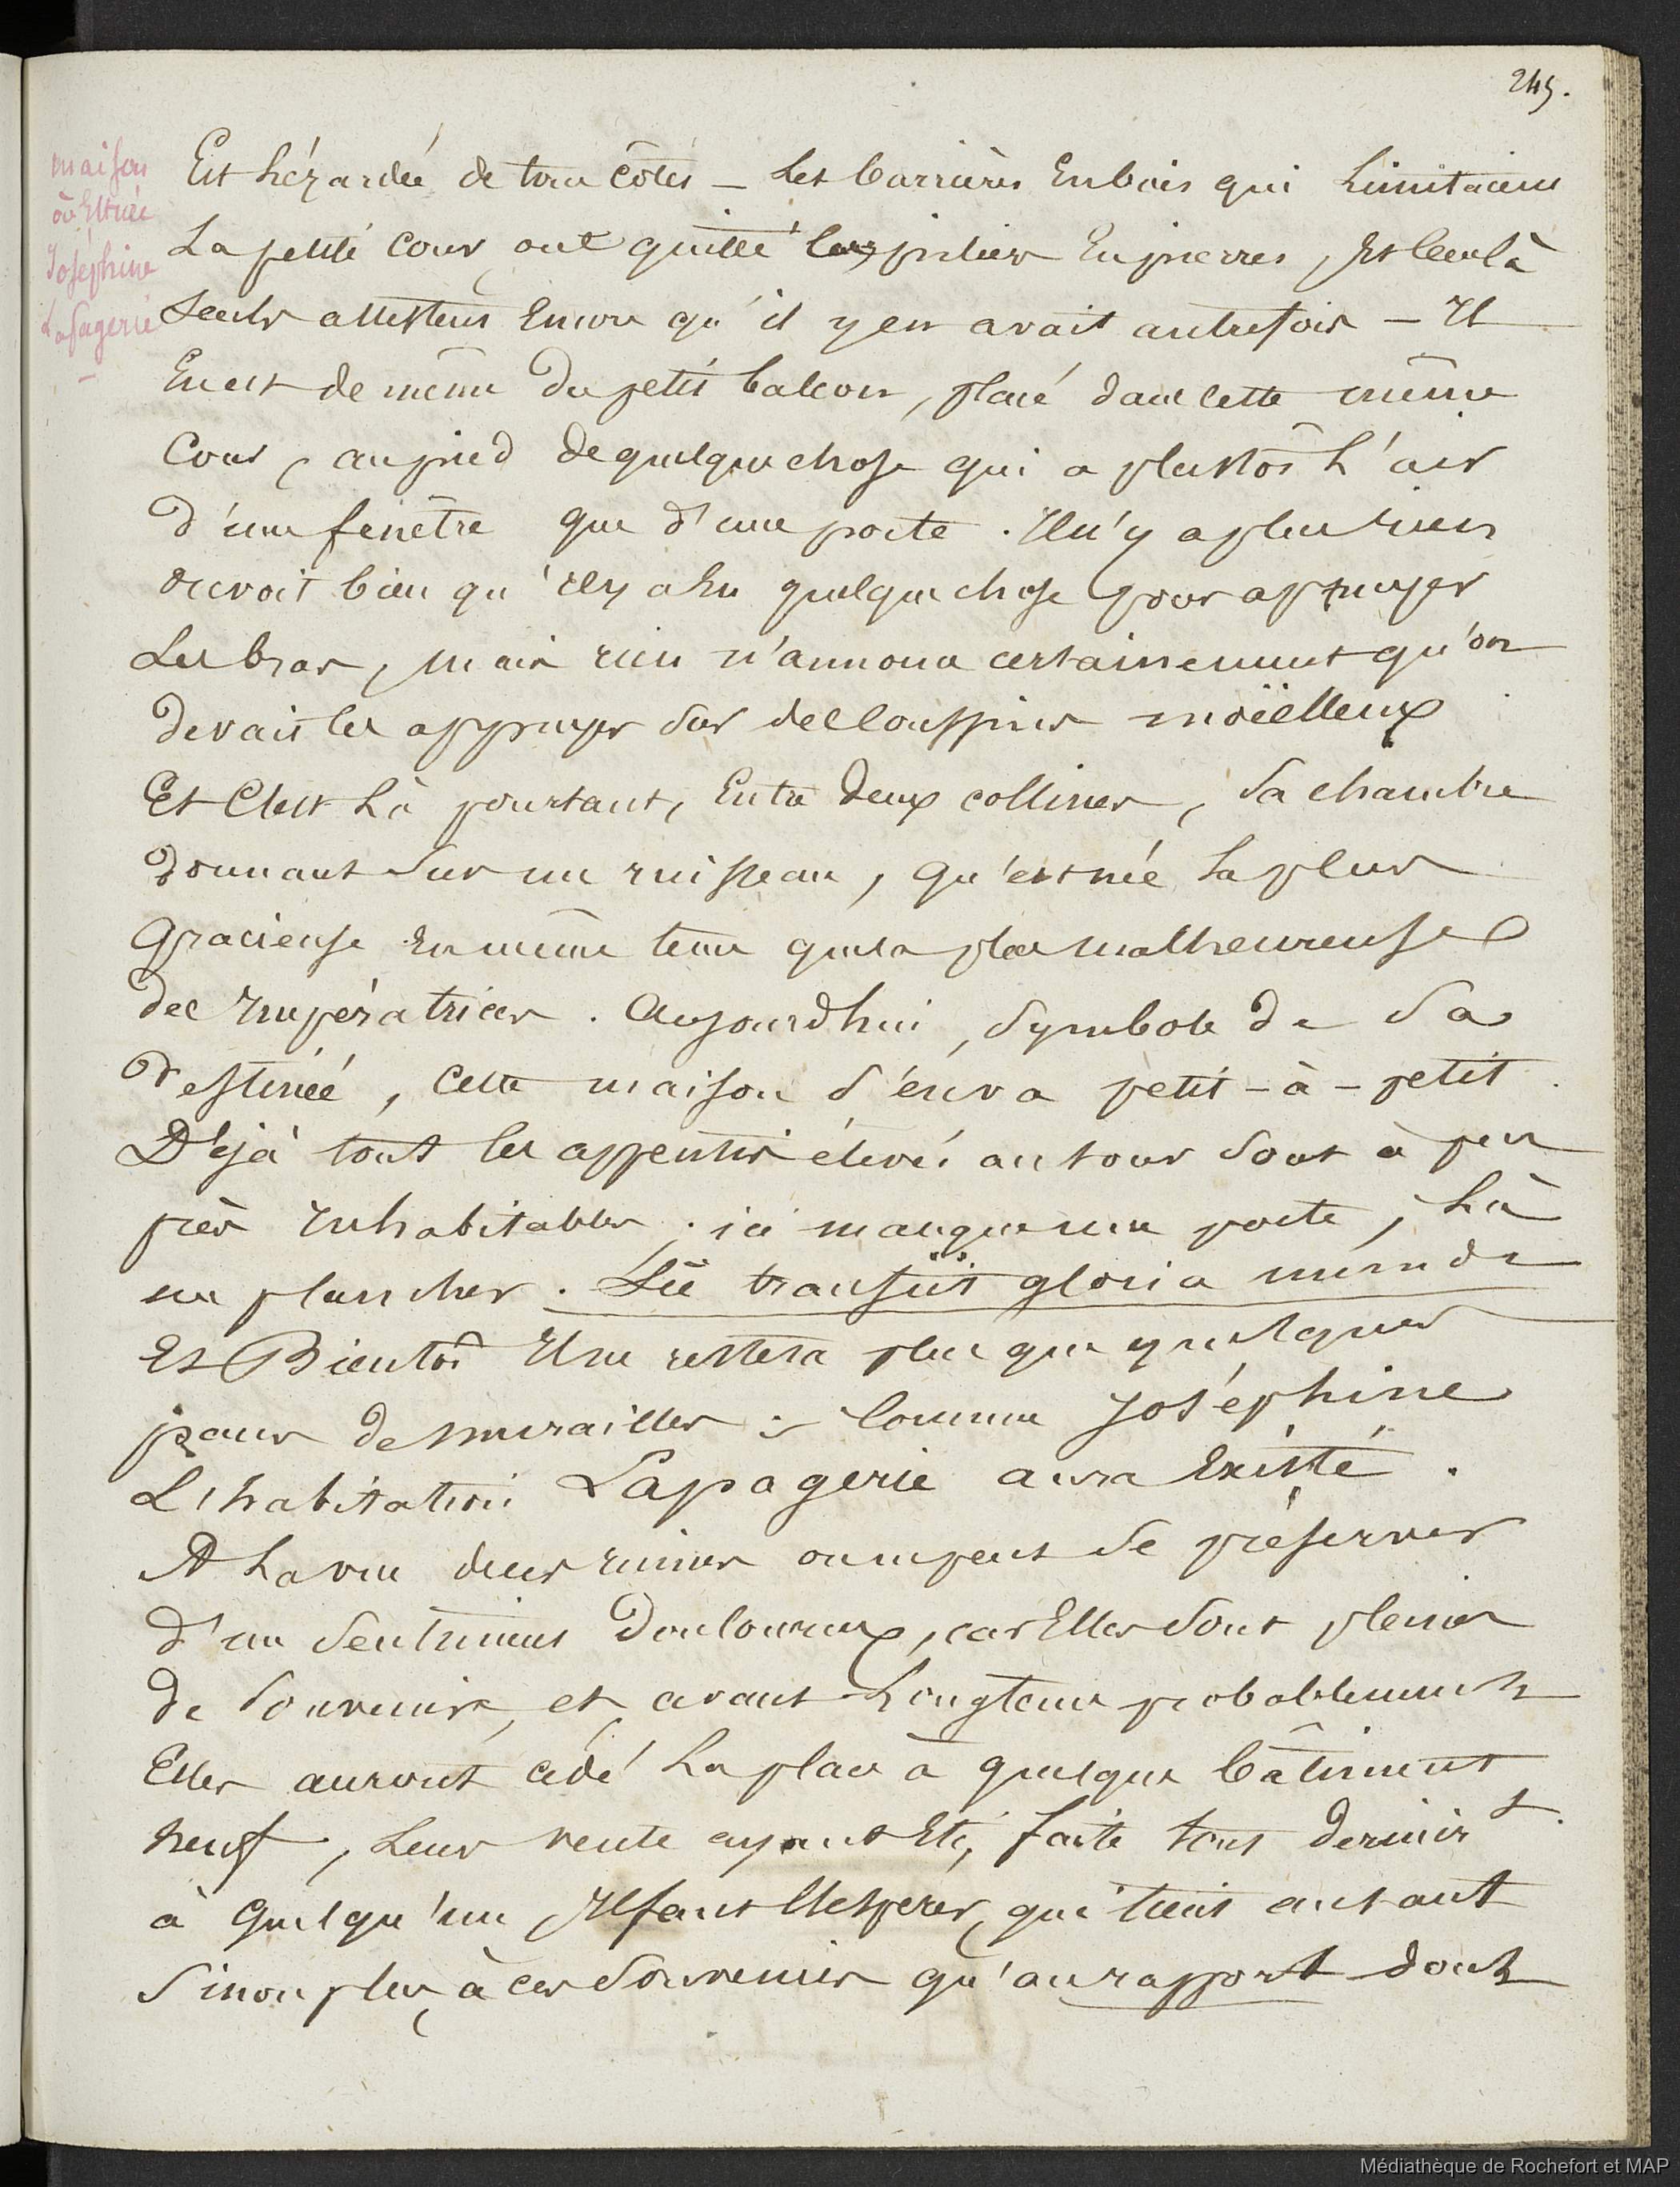 245.
maison
où Est née
Joséphine
Lapagerie
Est lézardée de tous côtés – Les barrières En bois qui Limitaient
La petite Cour ont quitté les piliers En pierres, Et Ceux là
Seuls attestent Encore qu'il y en avait autrefois – Il
En est de même Du petit balcon, placé dans Cette même
Cour, au pied de quelque chose qui a plustôt L'air
d'une fenêtre que d'une porte. Il n'y a plus rien
on voit bien qu'il y a Eu quelque chose pour appuyer
Les bras, Mais rien n'annonce certainement qu'on
devait les appuyer sur des Coussins moëlleux
Et C'est Là pourtant, Entre deux collines, Sa chambre
donnant Sur un ruisseau, qu'est née La plus
Gracieuse En même tems que la plus malheureuse
des Impératrices. Aujourdhui, Symbole de Sa
destinée, Cette maison s'en va petit-à-petit
Déjà tout les appentis élevés autour Sont à peu
près Inhabitables; ici manque une porte, Là
un plancher. Sic transiit gloria mundi
Et Bientôt Il ne restera plus que quelques
pans de murailles: Comme Joséphine
L'habitation Lapagerie aura Existé.
A La vue de ces ruines on ne peut Se préserver
d'un Sentiment Douloureux, car Elles Sont pleines
de Souvenirs, et avant Longtems probablement
Elles auront cédé La place à quelque bâtiment
neuf, Leur vente ayant Eté, faite tout dernièrt.
à Quelqu'un Il faut L'espérer, qui tient autant
Sinon plus, à ces Souvenirs qu'au rapport dont